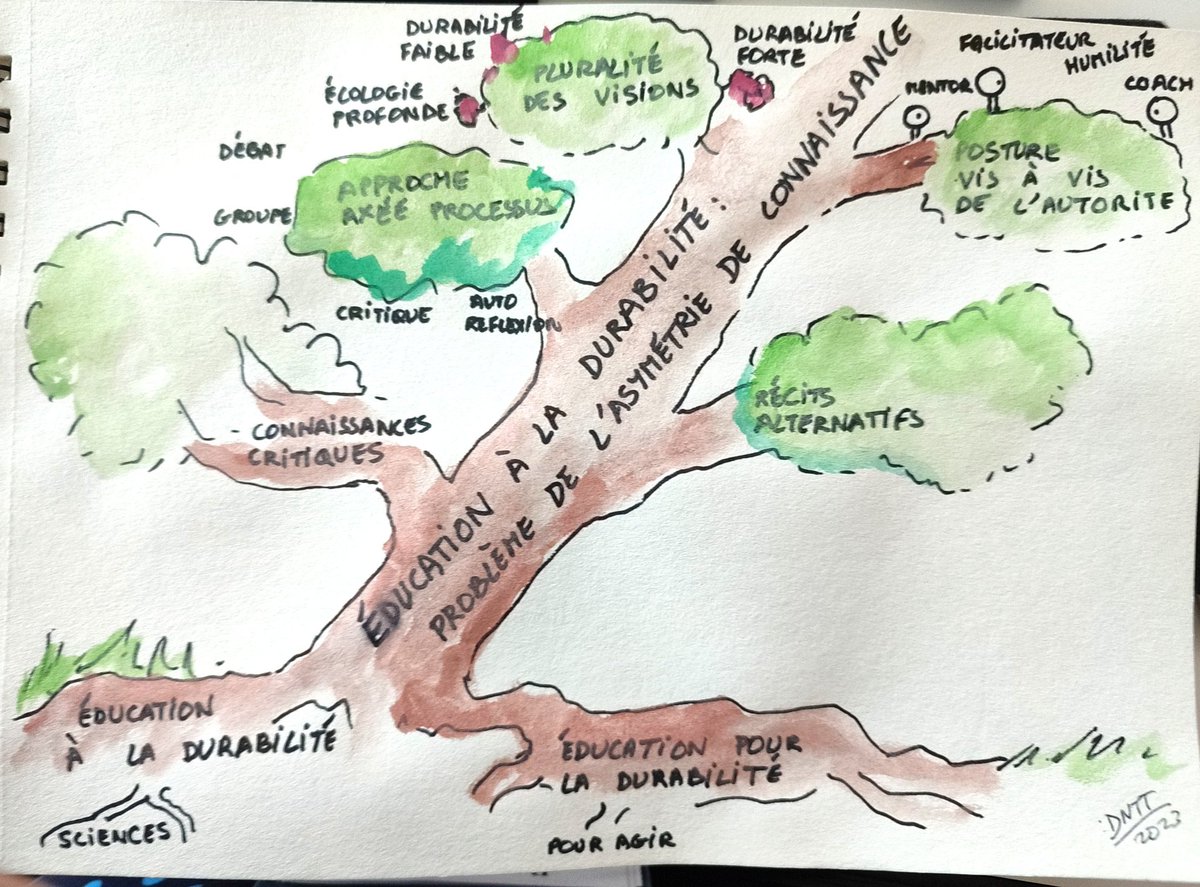 DURABILITÉ
FAIBLE
PLURALITÉ
DES VISIONS
DURABILITÉ
FORTE
ÉCOLOGIE
PROFONDE
FACICITATEUR
HUMILITÉ
MENTOR
COACH
POSTURE
VIS À VIS
DE L'AUTORITE
DÉBAT
GROUPE
APPROCHE
AXÉE PROCESSUS
CRITIQUE
AUTO
REFLEXION
RÉCITS
ALTERNATIFS
- CONNAISSANCES
CRITIQUES
ÉDUCATION À LA DURABILITÉ :
PROBLÈME DE L'ASYMÉTRIE DE CONNAISSANCE
ÉDUCATION
À LA DURABILITÉ
SCIENCES
ÉDUCATION POUR
LA DURABILITÉ
POUR AGIR
DNTT
2023